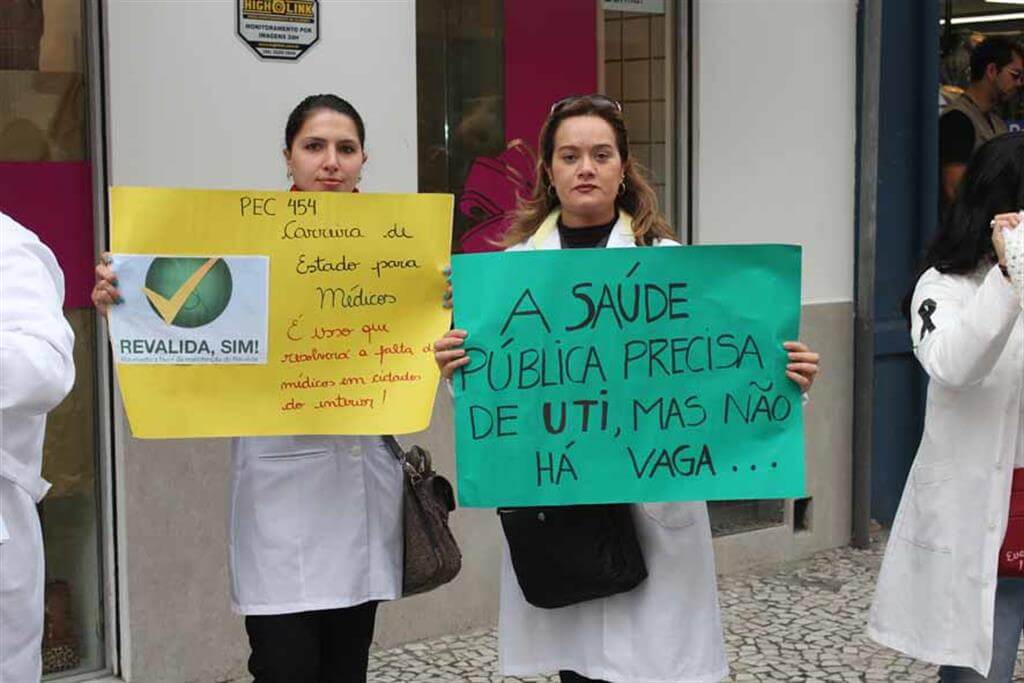 HIGH LINK
MONITORAMENTO POR
IMAGENS 24H
PEC 454
Carreira de
Estado para
Médicos
É isso que
resolverá a falta de
médicos em cidades
do interior!
REVALIDA, SIM!
A SAÚDE
PÚBLICA PRECISA
DE UTI, MAS NÃO
HÁ VAGA...